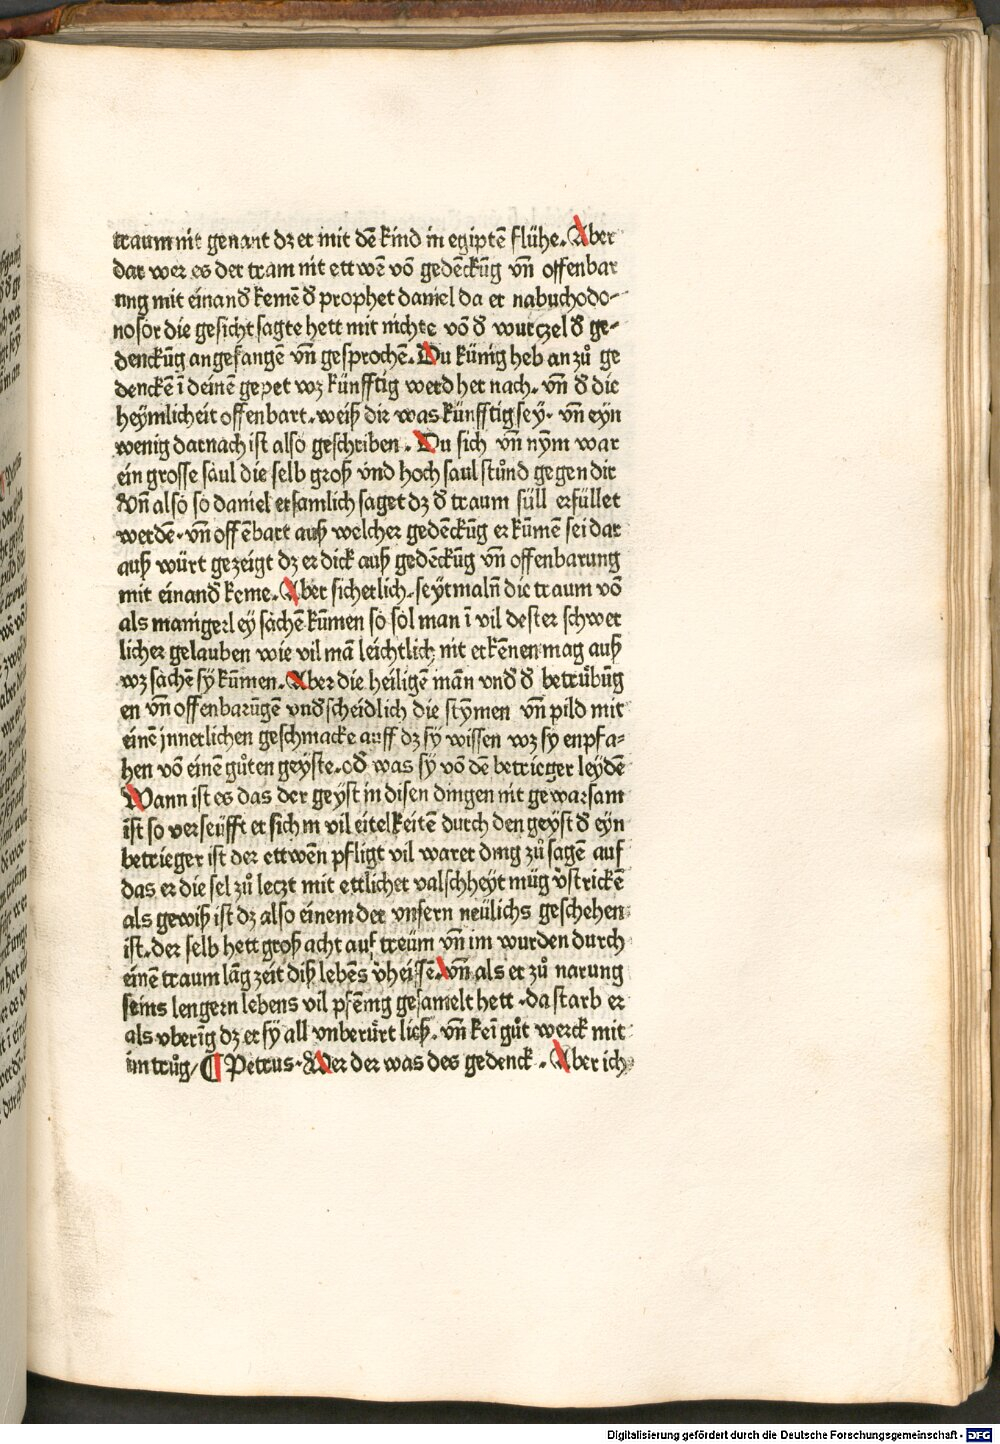 traum nit genant dz er mit dē kind in egiptē flühe. Aber
dar wer es der tram nit ettwē vō gedēckūg vn̄ offenbar
ung mit einand kemē d̄ prophet daniel da er nabuchodo-
nosor die gesicht sagte hett mit nichte vō d̄ wurczel d̄ ge-
denckūg angefangē vn̄ gesprochē. Du künig heb an zů ge
denckē ī deinē gepet wz künfftig werd her nach. vn̄ d̄ die
heymlicheit offenbart. weiß dir was künfftig sey. vn̄ eyn
wenig darnach ist also geschriben. Du sich vn̄ nym war
ein grosse saul die selb groß vnd hoch saul stůnd gegen dir
Vn̄ also so daniel ersamlich saget dz d̄ traum süll erfüllet
werdē. vn̄ offēbart auß welcher gedēckūg er kūmen sei dar
auß würt gezeigt dz er dick auß gedēckūg vn̄ offenbarung
mit einand̄ keme. Aber sicherlich. seytmaln̄ die traum vō
als manigerley sachē kūmen so sol man ī vil dester schwer
licher gelauben wie vil mā leichtlich nit erkēnen mag auß
wz sachē sy kūmen. Aber die heiligē mān vnd d̄ betrübūg
en vn̄ offenbarūgē vnd̄scheidlich die stymen vn̄ pild mit
einē jnnerlichen geschmacke auff dz sy wissen wz sy enpfa-
hen vō einē gůten geyste. od̄ was sy vō dē betrieger leydē
Wann ist es das der geyst in disen dingen nit gewarsam
ist so verseüfft er sich in vil eitelkeitē durch den geyst d̄ eyn
betrieger ist der ettwēn pfligt vil warer ding zů sagē auf
das er die sel zů leczt mit ettlicher valschheyt müg v̄strickē
als gewiß ist dz also einem der vnsern neülichs geschehen
ist. der selb hett groß acht auf treüm vn̄ im wurden durch
einē traum lāg zeit diß lebēs v̄heissē. vn̄ als er zů narung
seins lengern lebens vil pfēnig gesamelt hett. da starb er
als vberīg dz er sy all vnberürt ließ. vn̄ kei gůt werck mit
im trůg / ¶ Petrus. Wer der was des gedenck. Aber ich
Digitalisierung gefördert durch die Deutsche Forschungsgemeinschaft - DFG